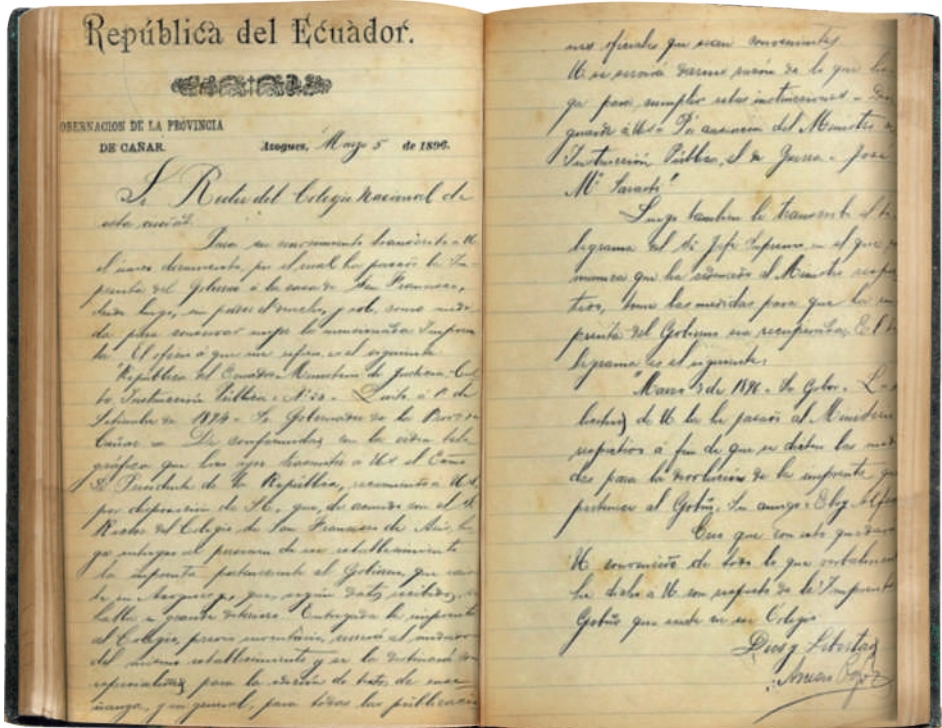 República del Ecuador.
OBERNACION DE LA PROVINCIA
DE CAÑAR.
Azogues, Marzo 5 de 1896.
Sr Rector del Colegio Nacional de
esta ciudad.
Para su conocimiento transcribo a U
el único documento, por el cual ha pasado la Im-
prenta del Gobierno á la casa de San Francisco,
desde luego, sin poseer el derecho, y solo como medi-
da para conservar mejor la mencionada Impren-
ta. El oficio á que me refiero, es el siguiente
"República del Ecuador - Ministerio de Justicia, Cul-
to, Instrucción Pública - Quito, á
Setiembre de 1894 - Sr Gobernador de la Prov. de
Cañar - De conformidad con la orden tele-
gráfica que hoy ayer trasmitió á US el Excmo
Sr Presidente de la República, recomiendo á US,
por disposición de SE, que, de acuerdo con el
Rector del Colegio de San Francisco de Asís, ha-
ga entregar al personal de ese establecimiento
la imprenta perteneciente al Gobierno, que exis-
te en Azogues y que, según datos recibidos, se
halla en grande deterioro. Entregada la imprenta
al Colegio, previo inventario, servirá al
del mismo establecimiento y se la destinará con
especialidad para la edición de textos de ense-
ñanza, y en general, para todas las publicacio
nes oficiales que sean convenientes
U se servirá darme razón de lo que ha-
ga para cumplir estas instrucciones - Dios
guarde á US - Por ausencia del Ministro de
Instrucción Pública, el de Guerra - José
Mª Sarasti"
Luego tambien le transcribo el te
legrama del Sr Jefe Supremo, en el que
que ha ordenado al Ministro respec
tivo, tome las medidas para que la im
prenta del Gobierno sea recuperada. El te
legrama es el siguiente:
"Marzo 3 de 1896 - Sr Gobor -
de U la he pasado al Ministerio
respectivo á fin de que se dicten las medi
das para la devolución de la imprenta que
pertenece al Gobno. Su amigo - Eloy Alfaro
Creo que con esto quedará
U convencido de todo lo que verbalmen
he dicho a U con respecto de la Imprenta
Gobno que existe en su Colegio
Dios y Libertad